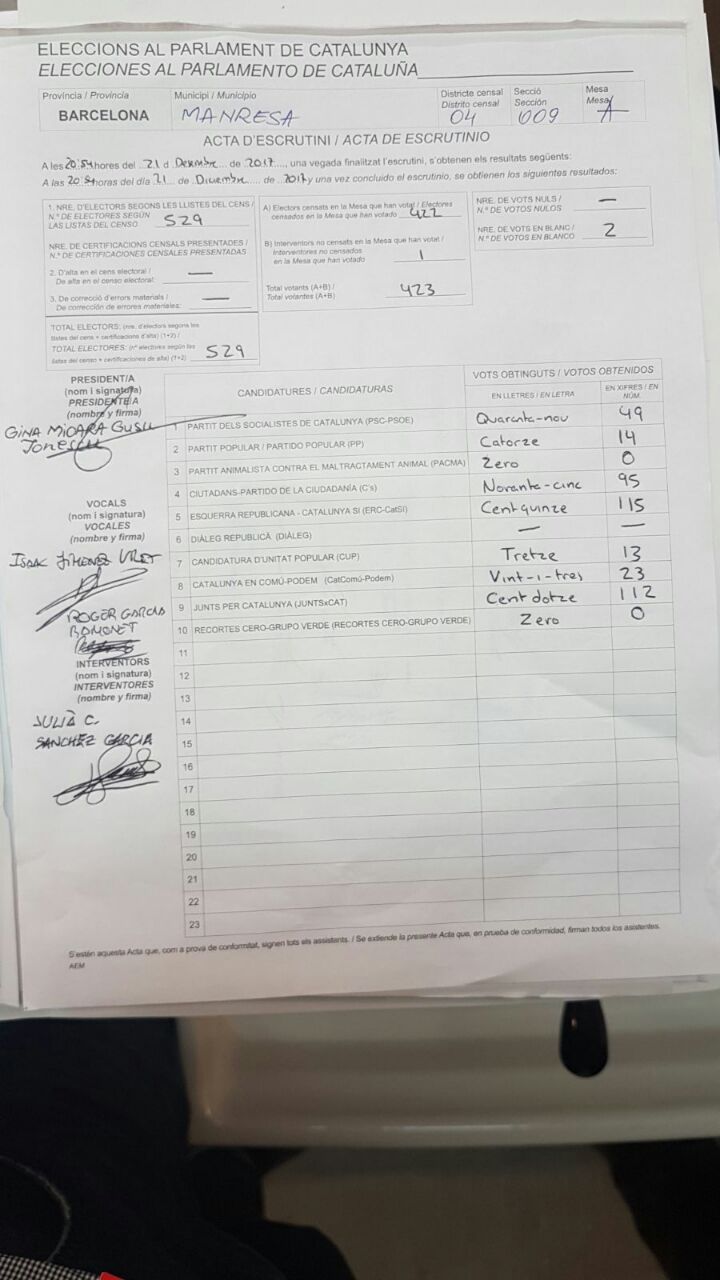 ELECCIONS AL PARLAMENT DE CATALUNYA
ELECCIONES AL PARLAMENTO DE CATALUÑA
Província / Provincia
BARCELONA
Municipi / Municipio
MANRESA
Districte censal
Distrito censal
04
Secció
Sección
009
Mesa
Mesa
A
ACTA D'ESCRUTINI / ACTA DE ESCRUTINIO
A les 20:54 hores del 21 d Desembre de 2017, una vegada finalitzat l'escrutini, s'obtenen els resultats següents:
A las 20:54 horas del día 21 de Diciembre de 2017 y una vez concluido el escrutinio, se obtienen los siguientes resultados:
1. NRE. D'ELECTORS SEGONS LES LLISTES DEL CENS /
N.º DE ELECTORES SEGÚN
LAS LISTAS DEL CENSO
529
NRE. DE CERTIFICACIONS CENSALS PRESENTADES /
N.º DE CERTIFICACIONES CENSALES PRESENTADAS
2. D'alta en el cens electoral /
De alta en el censo electoral: —
3. De correcció d'errors materials /
De corrección de errores materiales: —
TOTAL ELECTORS: (nre. d'electors segons les
llistes del cens + certificacions d'alta) (1+2) /
TOTAL ELECTORES: (nº electores según las
listas del censo + certificaciones de alta) (1+2) 529
A) Electors censats en la Mesa que han votat / Electores
censados en la Mesa que han votado 422
B) Interventors no censats en la Mesa que han votat /
Interventores no censados
en la Mesa que han votado 1
Total votants (A+B) /
Total votantes (A+B) 423
NRE. DE VOTS NULS /
N.º DE VOTOS NULOS —
NRE. DE VOTS EN BLANC /
N.º DE VOTOS EN BLANCO 2
PRESIDENT/A
(nom i signatura)
PRESIDENTE/A
(nombre y firma)
GINA
VOCALS
(nom i signatura)
VOCALES
(nombre y firma)
ISAAC JIMENEZ
ROGER GARCIA
INTERVENTORS
(nom i signatura)
INTERVENTORES
(nombre y firma)
JULIÀ C.
SANCHEZ GARCIA
CANDIDATURES / CANDIDATURAS
VOTS OBTINGUTS / VOTOS OBTENIDOS
EN LLETRES / EN LETRA
EN XIFRES / EN NÚM.
1 PARTIT DELS SOCIALISTES DE CATALUNYA (PSC-PSOE) Quaranta-nou 49
2 PARTIT POPULAR / PARTIDO POPULAR (PP) Catorze 14
3 PARTIT ANIMALISTA CONTRA EL MALTRACTAMENT ANIMAL (PACMA) Zero 0
4 CIUTADANS-PARTIDO DE LA CIUDADANÍA (C's) Noranta-cinc 95
5 ESQUERRA REPUBLICANA - CATALUNYA SÍ (ERC-CatSí) Cent quinze 115
6 DIÀLEG REPUBLICÀ (DIÀLEG) — —
7 CANDIDATURA D'UNITAT POPULAR (CUP) Tretze 13
8 CATALUNYA EN COMÚ-PODEM (CatComú-Podem) Vint-i-tres 23
9 JUNTS PER CATALUNYA (JUNTSxCAT) Cent dotze 112
10 RECORTES CERO-GRUPO VERDE (RECORTES CERO-GRUPO VERDE) Zero 0
11
12
13
14
15
16
17
18
19
20
21
22
23
S'estén aquesta Acta que, com a prova de conformitat, signen tots els assistents. / Se extiende la presente Acta que, en prueba de conformidad, firman todos los asistentes.
AEM